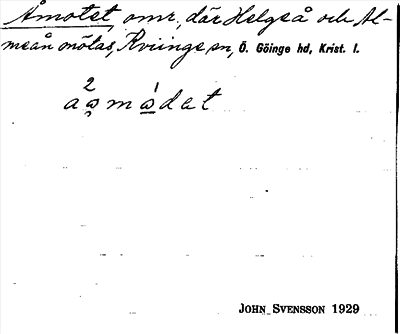 Åmotet, omr., där Helgeå och Al-
meån mötas, Kviinge sn, Ö. Göinge hd, Krist. l.
2 1
a a̤ m a̲ d e t
JOHN SVENSSON 1929